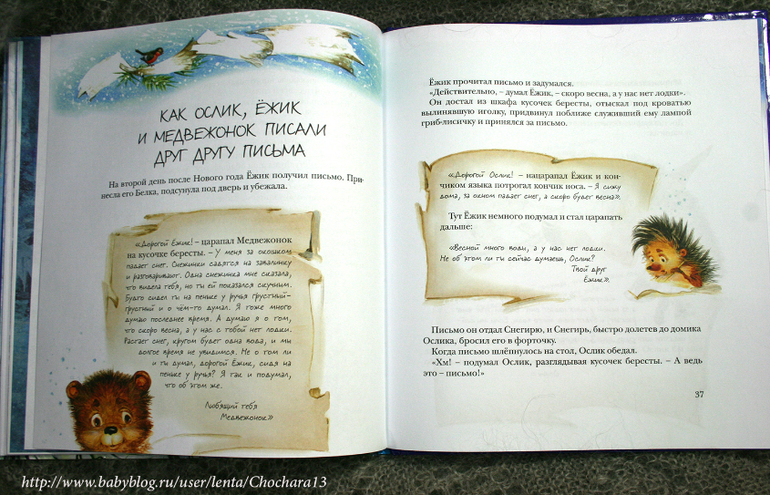 КАК ОСЛИК, ЁЖИК
И МЕДВЕЖОНОК ПИСАЛИ
ДРУГ ДРУГУ ПИСЬМА
На второй день после Нового года Ёжик получил письмо. При-
несла его Белка, подсунула под дверь и убежала.
«Дорогой Ёжик! – царапал Медвежонок
на кусочке бересты. – У меня за окошком
падает снег. Снежинки садятся на завалинку
и разговаривают. Одна снежинка мне сказала,
что видела тебя, но ты ей показался скучным.
Будто сидел ты на пеньке у ручья грустный-
грустный и о чём-то думал. Я тоже много
думаю последнее время. А думаю я о том,
что скоро весна, а у нас с тобой нет лодки.
Растает снег, кругом будет одна вода, и мы
долгое время не увидимся. Не о том ли
и ты думал, дорогой Ёжик, сидя на
пеньке у ручья? Я так и подумал,
что об этом же.
Любящий тебя
Медвежонок»
Ёжик прочитал письмо и задумался.
«Действительно, – думал Ёжик, – скоро весна, а у нас нет лодки».
Он достал из шкафа кусочек бересты, отыскал под кроватью
вылинявшую иголку, придвинул поближе служивший ему лампой
гриб-лисичку и принялся за письмо.
«Дорогой Ослик! – нацарапал Ёжик и кон-
чиком языка потрогал кончик носа. – Я сижу
дома, за окном падает снег, а скоро будет весна».
Тут Ёжик немного подумал и стал царапать
дальше:
«Весной много воды, а у нас нет лодки.
Не об этом ли ты сейчас думаешь, Ослик?
Твой друг
Ёжик».
Письмо он отдал Снегирю, и Снегирь, быстро долетев до домика
Ослика, бросил его в форточку.
Когда письмо шлёпнулось на стол, Ослик обедал.
«Хм! – подумал Ослик, разглядывая кусочек бересты. – А ведь
это – письмо!»
37
http://www.babyblog.ru/user/lenta/Chochara13